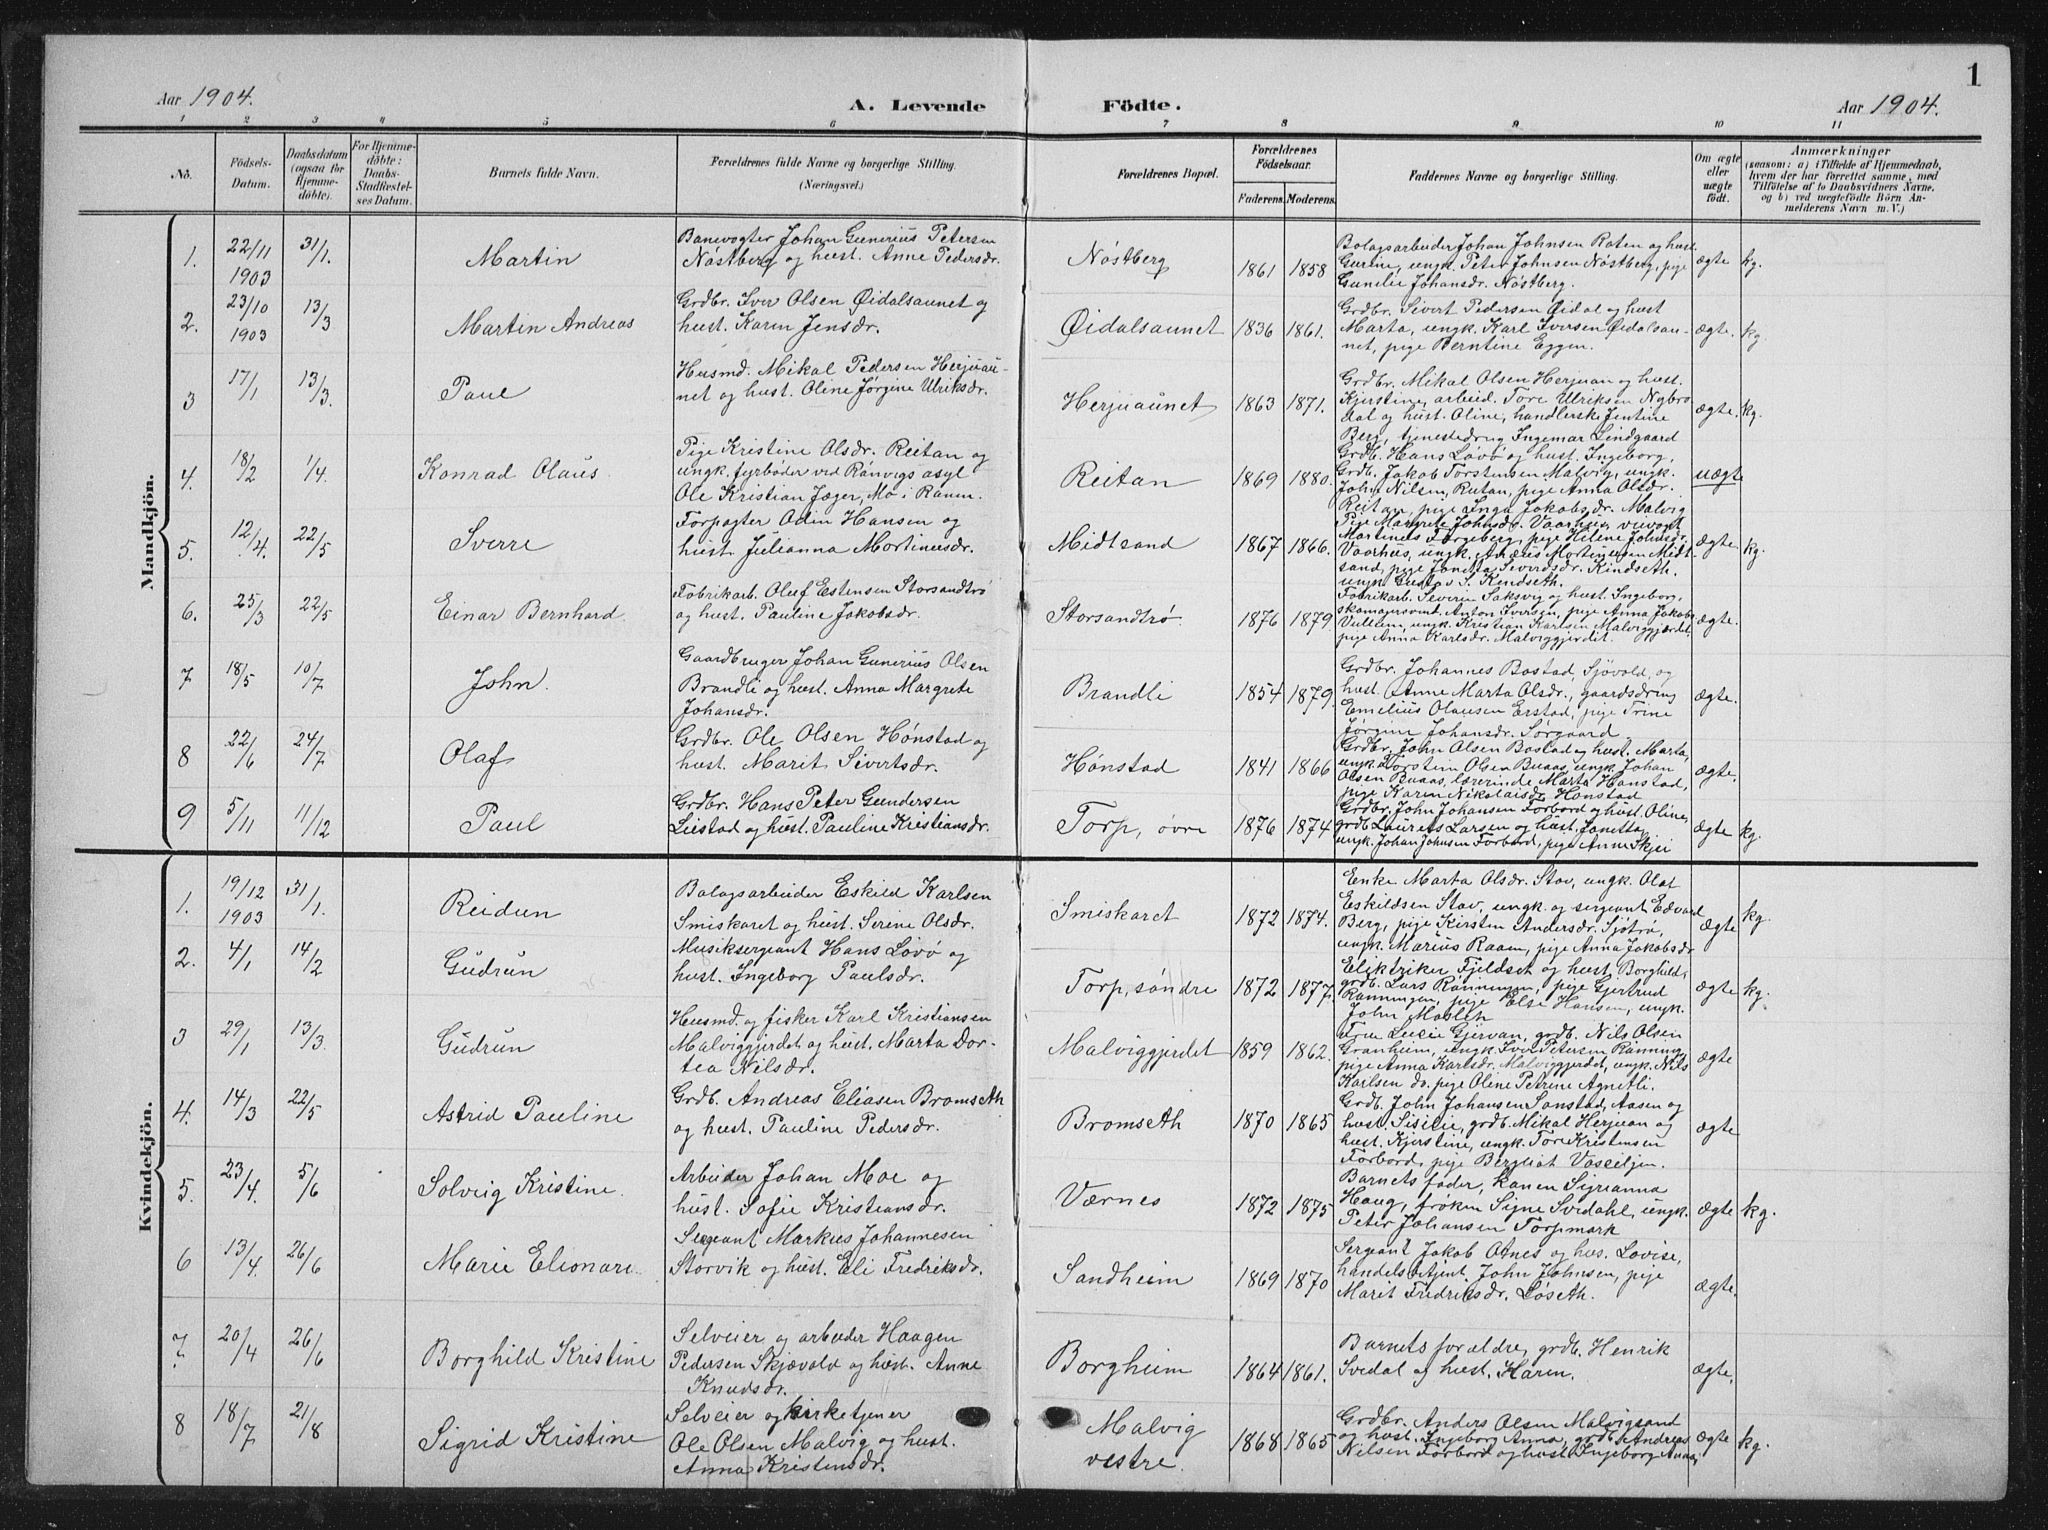 1
Aar 1904.
A. Levende Födte.
Aar 1904.
1 2 3 4 5 6 7 8 9 10 11
No.
Födsels-
Datum.
Daabsdatum
(ogsaa for
Hjemme-
döbte).
For Hjemme-
döbte:
Daabs-
Stadfæstel-
ses Datum.
Barnets fulde Navn.
Forældrenes fulde Navne og borgerlige Stilling.
(Næringsvei.)
Forældrenes Bopæl.
Forældrenes
Födselsaar.
Faderens. Moderens.
Faddernes Navne og borgerlige Stilling.
Om ægte
eller
uægte
födt.
Anmærkninger
(saasom: a) i Tilfælde af Hjemmedaab,
hvem der har forrettet samme, med
Tilföielse af to Daabsvidners Navne.
og b) ved uægtefödte Börn An-
melderens Navn m. V.)
Mandkjön.
1. 22/11 1903 31/1. Martin
Banevogter Johan Gunerius Petersen
Nøstberg og hust. Anne Pedersdr.
Nøstberg 1861 1858
Bolagsarbeider Johan Johnsen Roten og hust.
Gurine, ungk. Peter Johnsen Nøstberg, pige
Gunelie Johansdr. Nøstberg.
ægte kg.
2. 23/10 1903 13/3 Martin Andreas
Grdbr. Iver Olsen Øidalsaunet og
hust. Karen Jensdr.
Øidalsaunet 1836 1861.
Grdbr. Sivert Pedersen Øidal og hust
Marta, ungk. Karl Iversen Øidalsau-
net, pige Berntine Eggen.
ægte. kg.
3 17/1 13/3. Paul
Husmd. Mikal Pedersen Herjuau-
net og hust. Oline Jørgine Ulriksdr.
Herjuaunet 1863 1871.
Grdbr. Mikal Olsen Herjuan og hust.
Kjerstine, arbeid. Tore Ulriksen Nybro
dal og hust. Oline, handlersk Jentine
Berg, tjenestedrug Ingemar Lindgaard
ægte. kg.
4. 18/2 1/4. Konrad Olaus.
Pige Kristine Olsdr. Reitan og
ungk. fyrbøder ved Rønvigs asyl
Ole Kristian Jæger, Mo i Ranen.
Reitan 1869 1880.
Grdb. Hans Løvø og hust. Ingeborg,
Grdb. Jakob Torstensen Malvig, ungk.
John Nilsen, Reitan, pige Anna Olsdr.
Reitan, pige Inga Jakobsdr. Malvig
uægte
5. 12/4. 22/5 Sverre
Forpagter Odin Hansen og
hust. Julianna Mortinusdr.
Midtsand 1867 1866.
Pige Margrete Johnsdr. Vaarhus,
Martines Forgeberg, pige Helene Johnsdr.
Vaarhus, ungk. Midt-
sand, pige Jonetta Siversdr. Kindseth.
ungk. Gustav S. Kindseth.
ægte. kg.
6. 25/3 22/5 Einar Bernhard
Fabrikarb. Oluf Estensen Storsandtrø
og hust. Pauline Jakobsdr.
Storsandtrø 1876 1879
Fabrikarb. Severin Saksvig og hust. Ingeborg,
skomagersvend. Anton Iversen, pige Anna Jakobs.
ungk. Kristian Karlsen Malviggjærdet,
pige Anna Karlsdr. Malviggjerdet.
ægte.
7 18/5 10/7 John.
Gaardbruger Johan Gunerius Olsen
Brandli og hust. Anna Margrete
Johansdr.
Brandli 1854 1879.
Grdbr. Johannes Bostad, Sjøvold, og
hust. Anne Marta Olsdr., gaardsdreng
Emelius Olausen Erstad, pige Trine
Jørgine Johansdr. Sørgaard
ægte.
8 22/6 24/7 Olaf
Grdbr. Ole Olsen Hønstad og
hust. Marit Sivertsdr.
Hønstad 1841 1866
Grdbr. John Olsen Bostad og hust. Marta,
ungk. Torstein Olsen Buaas, ungk. Johan
Olsen Buaas, lærerinde Marta Hønstad,
pige Karen Nikolaisdr. Hønstad
ægte.
9 5/11 11/12 Paul
Grdbr. Hans Peter Gundersen
Leistad og hust. Pauline Kristiansdr.
Torp, øvre 1876 1874
Grdbr. John Johansen Forbord og hust. Oline,
grdb. Laurits Larsen og hust. Jonetta,
ungk. Johan Johnsen Forbord, pige Anne Skjei
ægte kg.
Kvindekjön.
1. 19/12 1903 31/1. Reidun
Bolagsarbeider Eskild Karlsen
Smiskaret og hust. Serine Olsdr.
Smiskaret 1872 1874.
Enke Marta Olsdr. Stav, ungk. Olaf
Eskildsen Stav, ungk. og sergeant Edvard
Berg, pige Kirsten Andersdr. Sjøtrø,
ungk. Marius Raaen, pige Anna Jakobsdr
ægte kg.
2. 4/1 14/2 Gudrun
Musiksergeant Hans Løvø og
hust. Ingeborg Paulsdr.
Torp, søndre 1872 1877.
Eliktriker Fjeldset og hust. Borghild,
grdb. Lars Rønningen, pige Gjertrud
Rønningen, pige Else Hansen, ungk.
John
ægte kg.
3 29/1 13/3. Gudrun
Husmd. og fisker Karl Kristiansen
Malviggjerdet og hust. Marta Dor-
tea Nilsdr.
Malviggjerdet 1859 1862.
Fru Lucie Gjervan, grdb. Nils Olsen
Granheim, ungk. Iver Petersen Rønning,
pige Anna Karlsdr. Malviggjerdet, ungk. Nils
Karlsen do. pige Oline Petrine Agnetli.
ægte
4. 14/3 22/5 Astrid Pauline
Grdb. Andreas Eliasen Bromseth
og hust. Pauline Pedersdr.
Bromseth 1870 1865
Grdb. John Johansen Sonstad, Aasen og
hust. Sisilie, grdb. Mikal Herjuan og
hust. Kjerstine, ungk. Tore Kristensen
Forbord, pige Bergliot Vasseljen.
ægte
5. 23/4. 5/6 Solveig Kristine.
Arbeider Johan Moe og
hust. Sofie Kristiansdr.
Værnes 1872 1875
Barnets fader, konen Sirianna
Haug, frøken Signe Svedahl, ungk.
Peter Johansen Torpmark
ægte kg.
6 13/4. 26/6 Marie Elionare.
Sergeant Markus Johannesen
Storvik og hust. Eli Fredriksdr.
Sandheim 1869 1870
Sergeant Jakob Otnes og hus. Lovise,
handelsbetjent. John Johnsen, pige
Marit Fredriksdr. Løseth.
ægte.
7. 20/4 26/6 Borghild Kristine
Selveier og arbeider Haagen
Pedersen Skjævold og hust. Anne
Knudsdr.
Borgheim 1864 1861.
Barnets forældre, grdb. Henrik
Svedal og hust. Karen.
ægte.
8 18/7 21/8 Sigrid Kristine
Selveier og kirketjener
Ole Olsen Malvig og hust.
Anna Kristensdr.
Malvig
vestre. 1868 1865
Grdbr. Anders Olsen Malvigsand
og hust. Ingeborg Anna, grdb. Andreas
Nilsen Forbord og hust. Ingeborg Anna,
ægte kg.